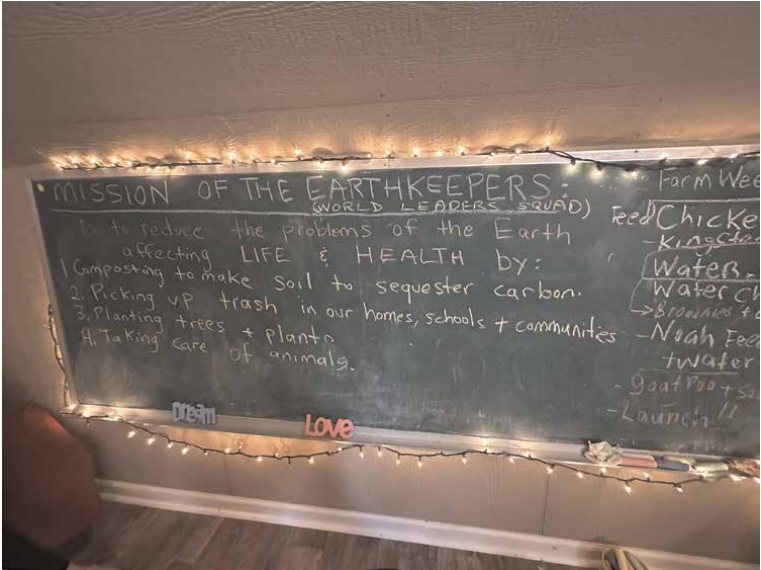 MISSION OF THE EARTHKEEPERS:
(WORLD LEADERS SQUAD)
to reduce the problems of the Earth
affecting LIFE & HEALTH by:
1 Composting to make soil to sequester carbon.
2. Picking up trash in our homes, schools + communities
3. Planting trees + plants
4. Taking care of animals.
Dream
Love
Farm Wee
Feed Chicke
Water
Water Ch
→ Brownies +
- Noah Feed
+ water
- goat Poo + So
- Launch!!